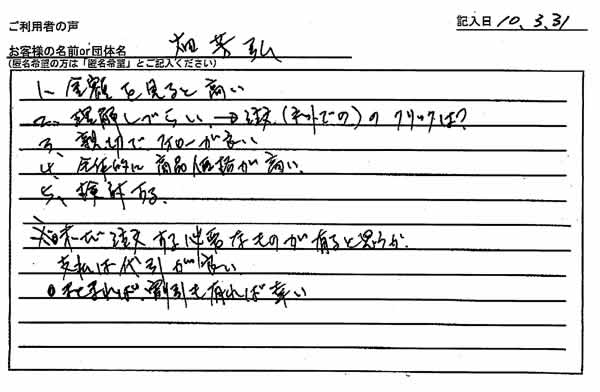 ご利用者の声
記入日 10.3.31
お客様の名前or団体名 畑 芳弘
(匿名希望の方は「匿名希望」とご記入ください)
1、金額を見ると高い
2、理解しづらい→注文(ネットでの)のクリックは?
3、親切でフローが良い
4、全体的に商品価格が高い。
5、検討する。
注文する必要なものが有ると思うが、
支払は代引が良い
出来れば、割引も有れば幸い